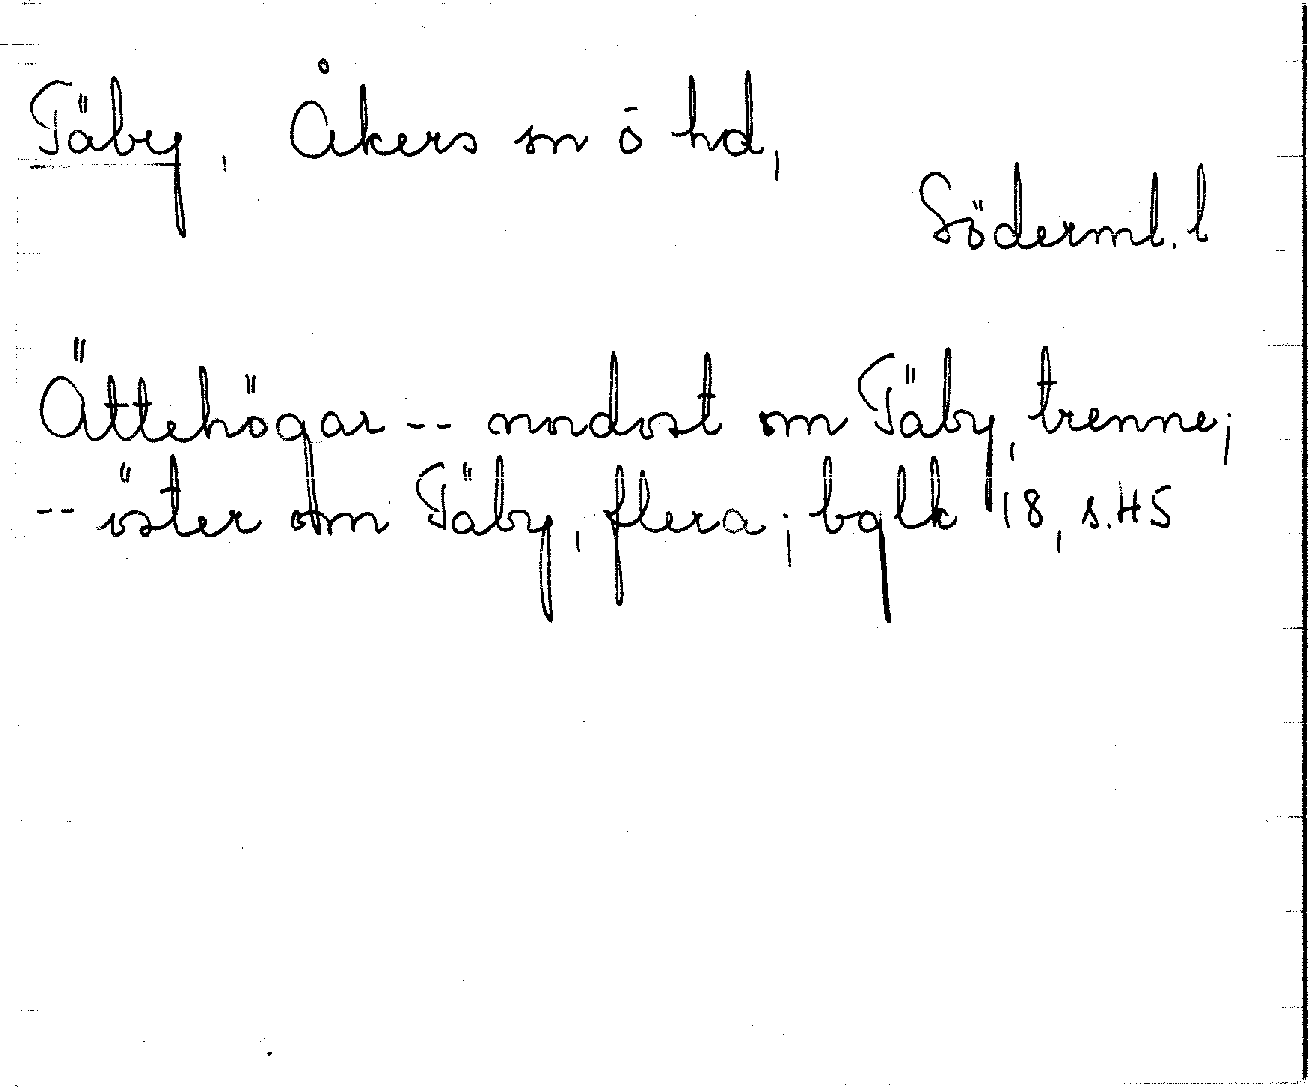 Täby, Åkers sn o hd,
Söderml. l
Ättehögar -- nordost om Täby, trenne;
-- öster om Täby, flera; bglk 18, s. 45